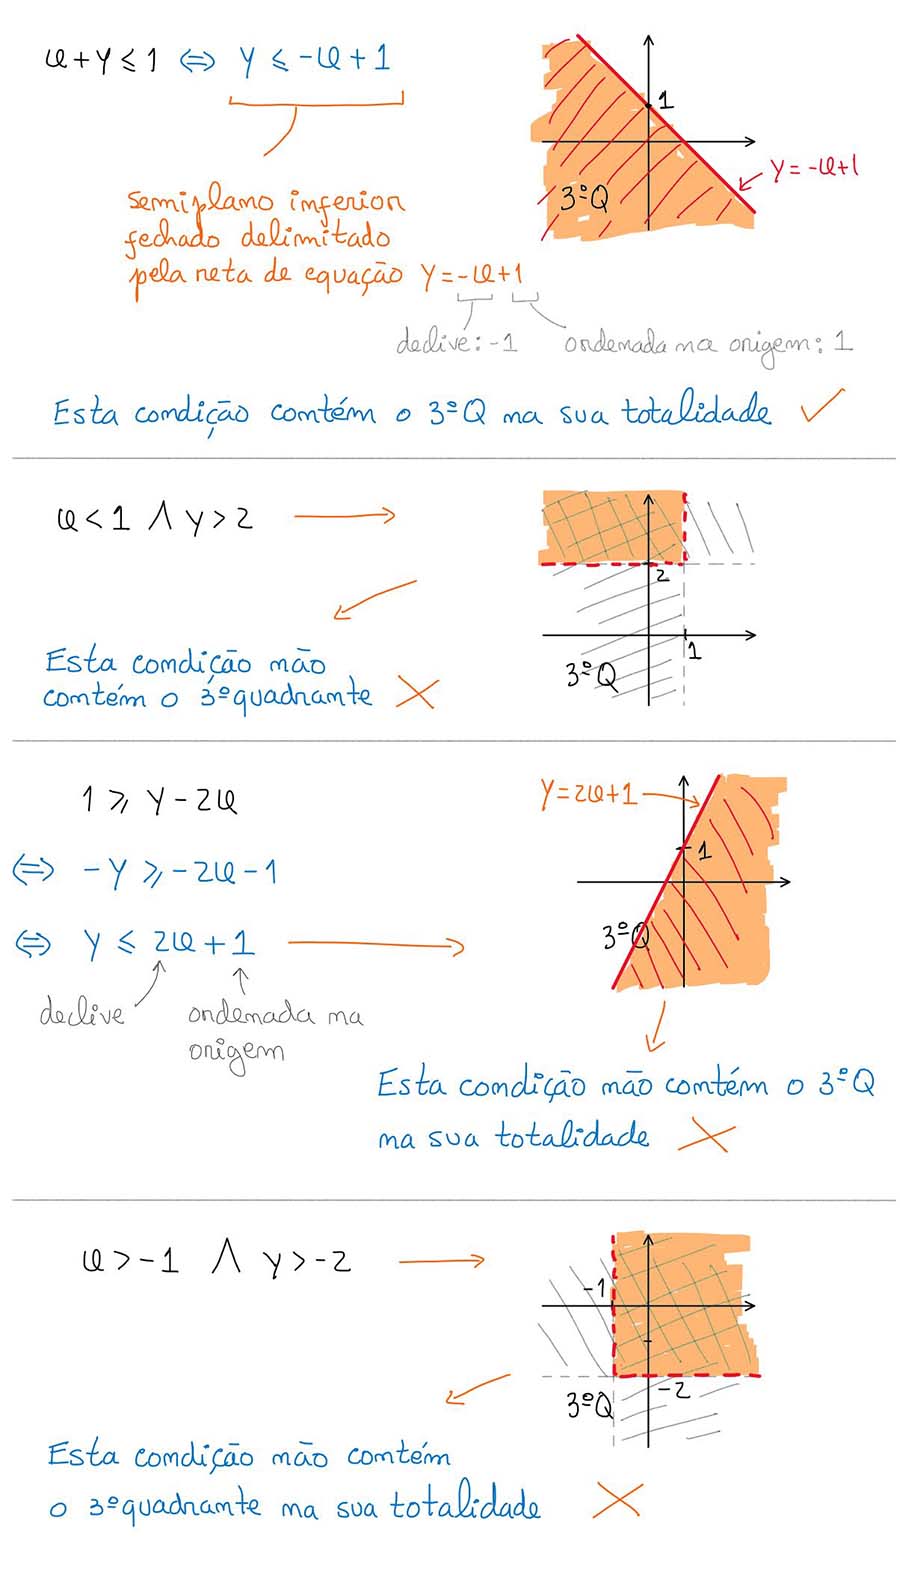 x+y≤1 ⇔ y≤-x+1
1
y=-x+1
3ºQ
semiplano inferior
fechado delimitado
pela reta de equação y=-x+1
declive: -1 ordenada na origem: 1
Esta condição contém o 3ºQ na sua totalidade ✓
x<1 ∧ y>2
2
1
3ºQ
Esta condição não
contém o 3ºquadrante ✗
1≥y-2x
y=2x+1
1
⇔ -y≥-2x-1
⇔ y≤2x+1
3ºQ
declive ordenada na
origem
Esta condição não contém o 3ºQ
na sua totalidade ✗
x>-1 ∧ y>-2
-1
-2
3ºQ
Esta condição não contém
o 3ºquadrante na sua totalidade ✗